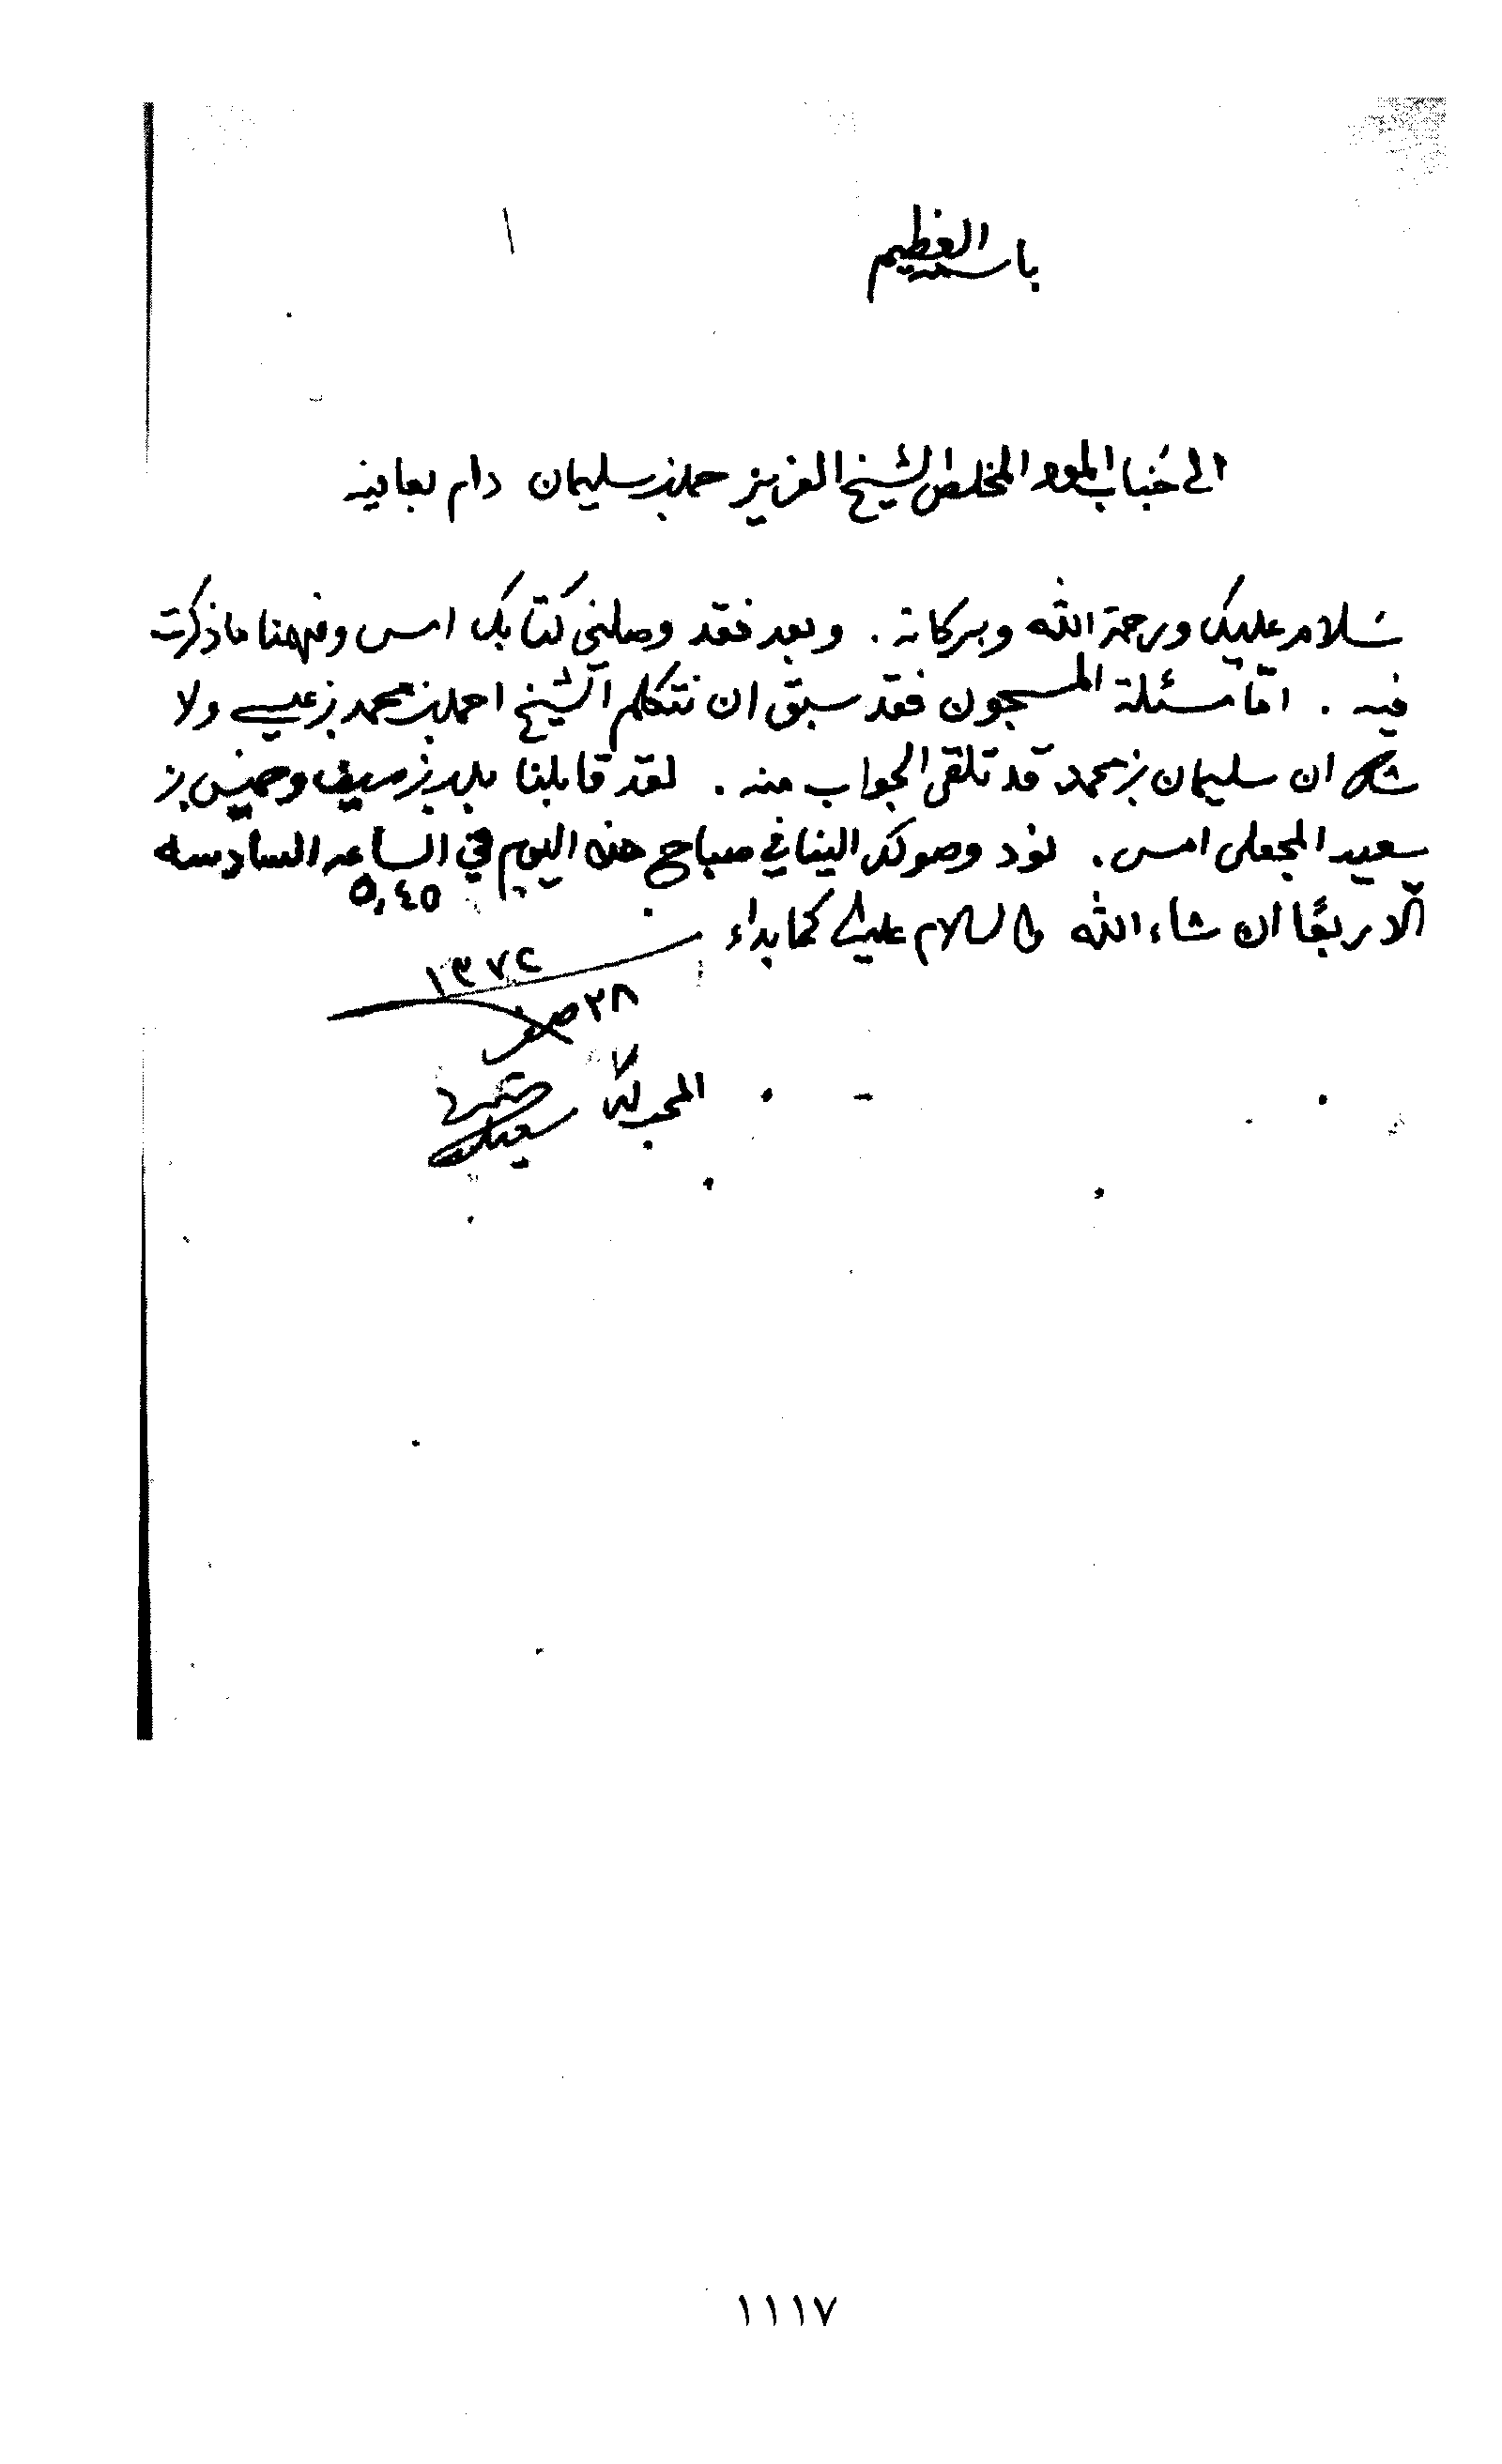 باسمه العظيم
الى جناب المود المخلص الشيخ العزيز حمد بن سليمان دام بعافيه
سلام عليك ورحمة الله وبركاته . وبعد فقد وصلني كتابك امس وفهمنا ماذكرته
فيه . امّا مسئلة المسجون فقد سبق ان نتكلم الشيخ احمد بن محمد بن عيسى ولا
شك ان سليمان بن محمد قد تلقى الجواب منه . لقد قابلنا بدر بن سيف وخميس بن
سعيد المجعلي امس . نود وصولك الينا في صباح هذه اليوم في الساعه السادسه
٥,٤٥
الّا ربعًا ان شاء الله والسلام عليك كما بداء
١٣٧٢
٢٨ صفر
المحب لك
سعيد
١١١٧